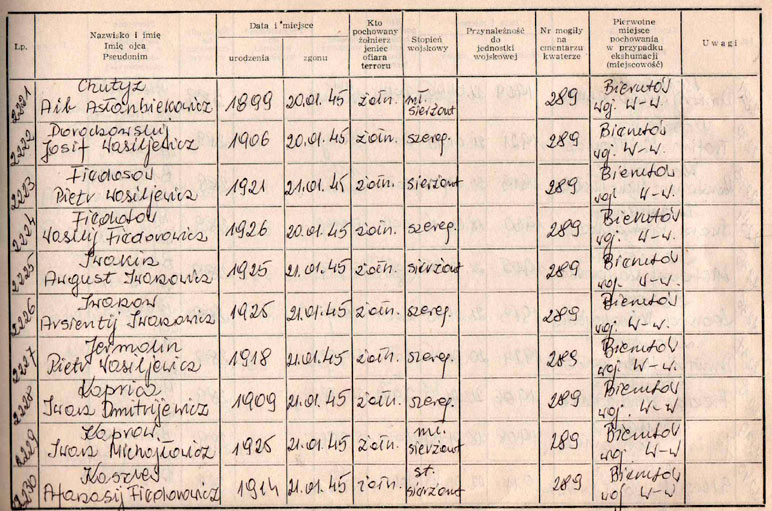 Lp.
Nazwisko i imię
Imię ojca
Pseudonim
Data i miejsce
urodzenia
zgonu
Kto
pochowany
żołnierz
jeniec
ofiara
terroru
Stopień
wojskowy
Przynależność
do
jednostki
wojskowej
Nr mogiły
na
cmentarzu
kwaterze
Pierwotne
miejsce
pochowania
w przypadku
ekshumacji
(miejscowość)
Uwagi
2221 Chutyz 1899 20.01.45 żołn. mł. sierżant 289 Bierutów
woj. W-w.
2222 Josif Wasiljewicz 1906 20.01.45 żołn. szereg. 289 Bierutów
woj. W-w.
2223 Fiedosow
Piotr Wasiljewicz 1921 21.01.45 żołn. sierżant 289 Bierutów
woj. W-w.
2224 Fiedotow
Wasilij Fiedorowicz 1926 20.01.45 żołn. szereg. 289 Bierutów
woj. W-w.
2225 Iwanin
August Iwanowicz 1925 21.01.45 żołn. sierżant 289 Bierutów
woj. W-w.
2226 Iwanow
Arsientij 1925 21.01.45 żołn. szereg. 289 Bierutów
woj. W-w.
2227 Jermolin
Piotr Wasiljewicz 1918 21.01.45 żołn. szereg. 289 Bierutów
woj. W-w.
2228 Iwan Dmitrijewicz 1909 21.01.45 żołn. szereg. 289 Bierutów
woj. W-w.
2229 Iwan Michajłowicz 1925 21.01.45 żołn. mł. sierżant 289 Bierutów
woj. W-w.
2230 1914 21.01.45 żołn. st. sierżant 289 Bierutów
woj. W-w.